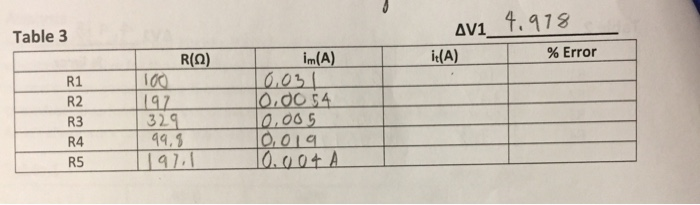 ΔV1 4.978
Table 3
R(Ω) im(A) it(A) % Error
R1 100 0.031
R2 197 0.0054
R3 329 0.005
R4 99.8 0.019
R5 197.1 0.004 A